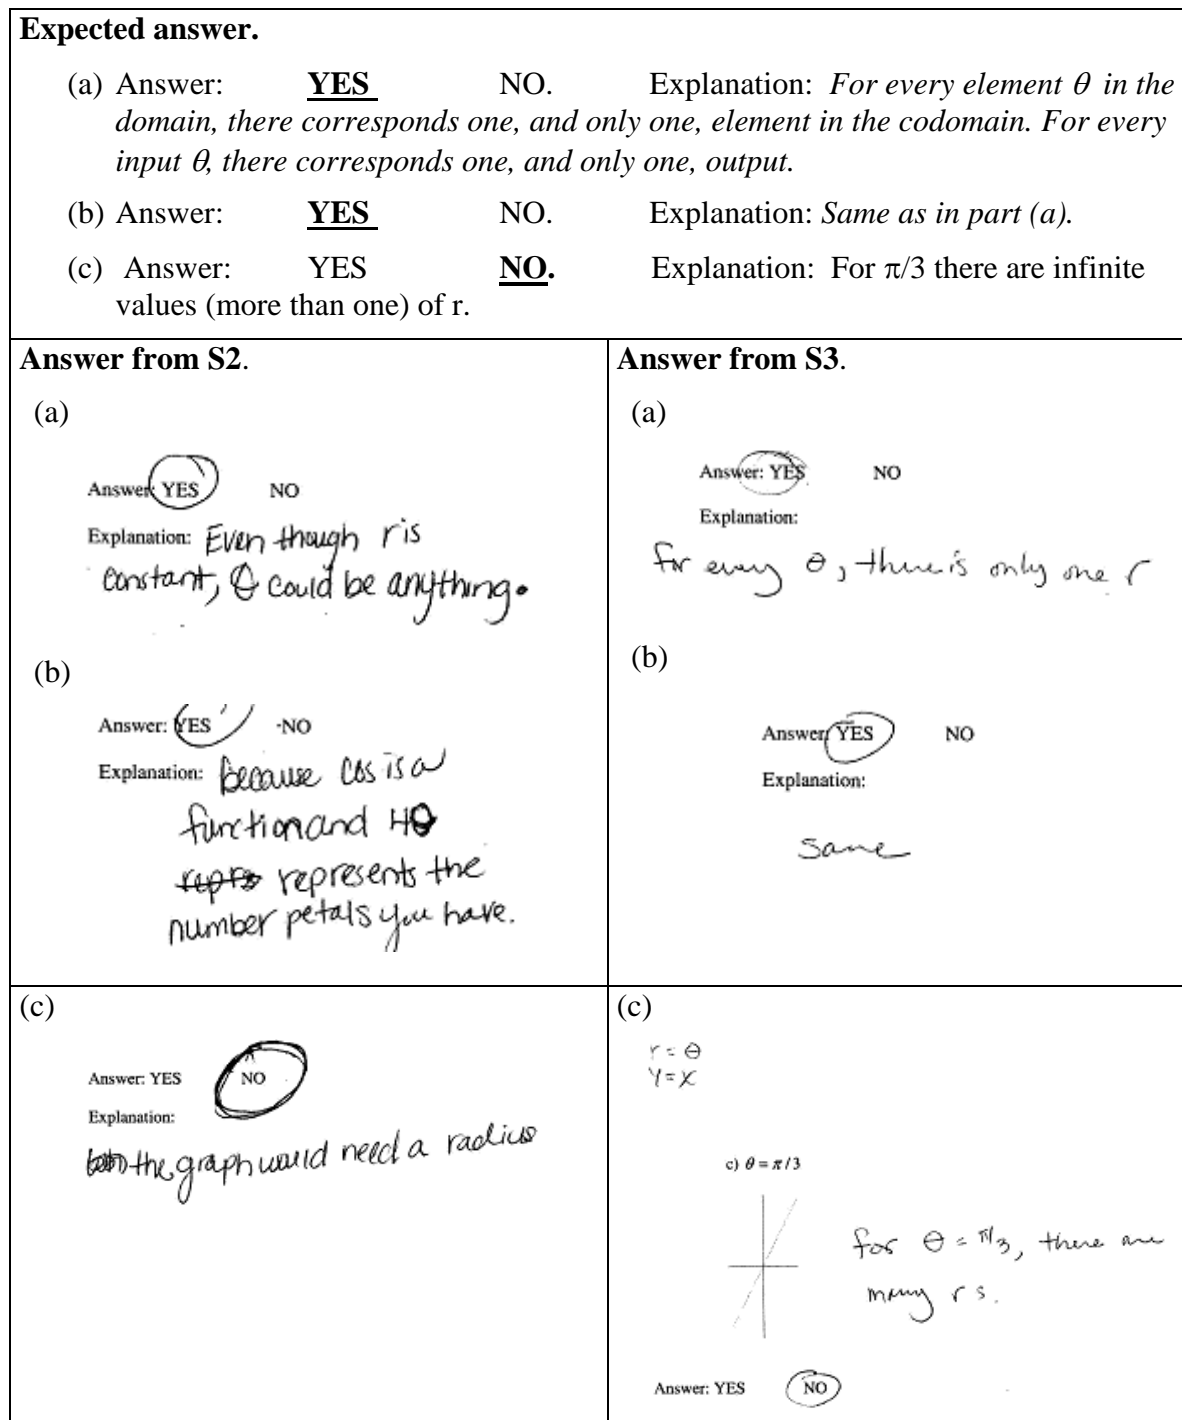 Expected answer.
(a) Answer: YES NO. Explanation: For every element θ in the
domain, there corresponds one, and only one, element in the codomain. For every
input θ, there corresponds one, and only one, output.
(b) Answer: YES NO. Explanation: Same as in part (a).
(c) Answer: YES NO. Explanation: For π/3 there are infinite
values (more than one) of r.
Answer from S2.
(a)
Answer: YES NO
Explanation: Even though r is
constant, θ could be anything.
(b)
Answer: YES NO
Explanation: because cos is a
function and 4θ
represents the
number petals you have.
Answer from S3.
(a)
Answer: YES NO
Explanation:
for every θ, there is only one r
(b)
Answer: YES NO
Explanation:
same
(c)
Answer: YES NO
Explanation:
the graph would need a radius
(c)
r = θ
y = x
c) θ = π/3
for θ = π/3, there are
many r s.
Answer: YES NO